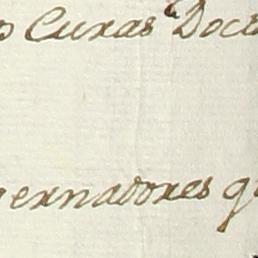 o Curas Doct
vernadores q